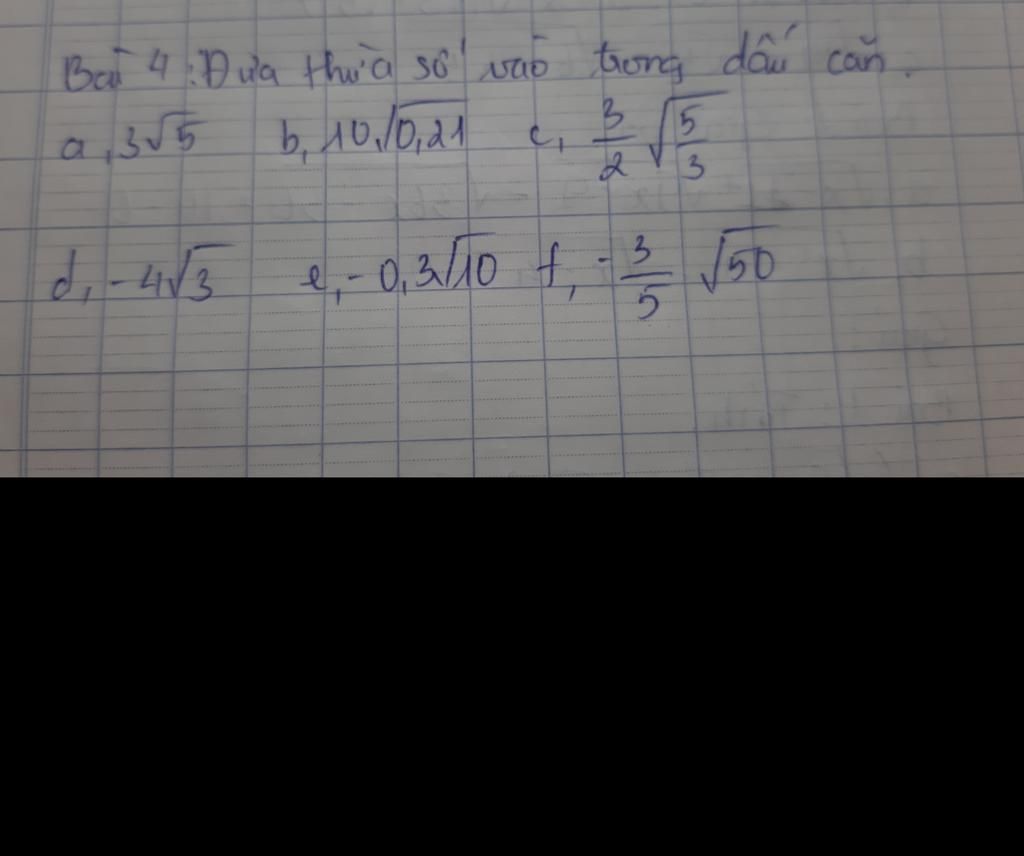 Bài 4: Đưa thừa số vào trong dấu căn.
a, 3√5 b, 10.√0,21 c, 3/2 √(5/3)
d, -4√3 e, -0,3√10 f, -3/5 √50